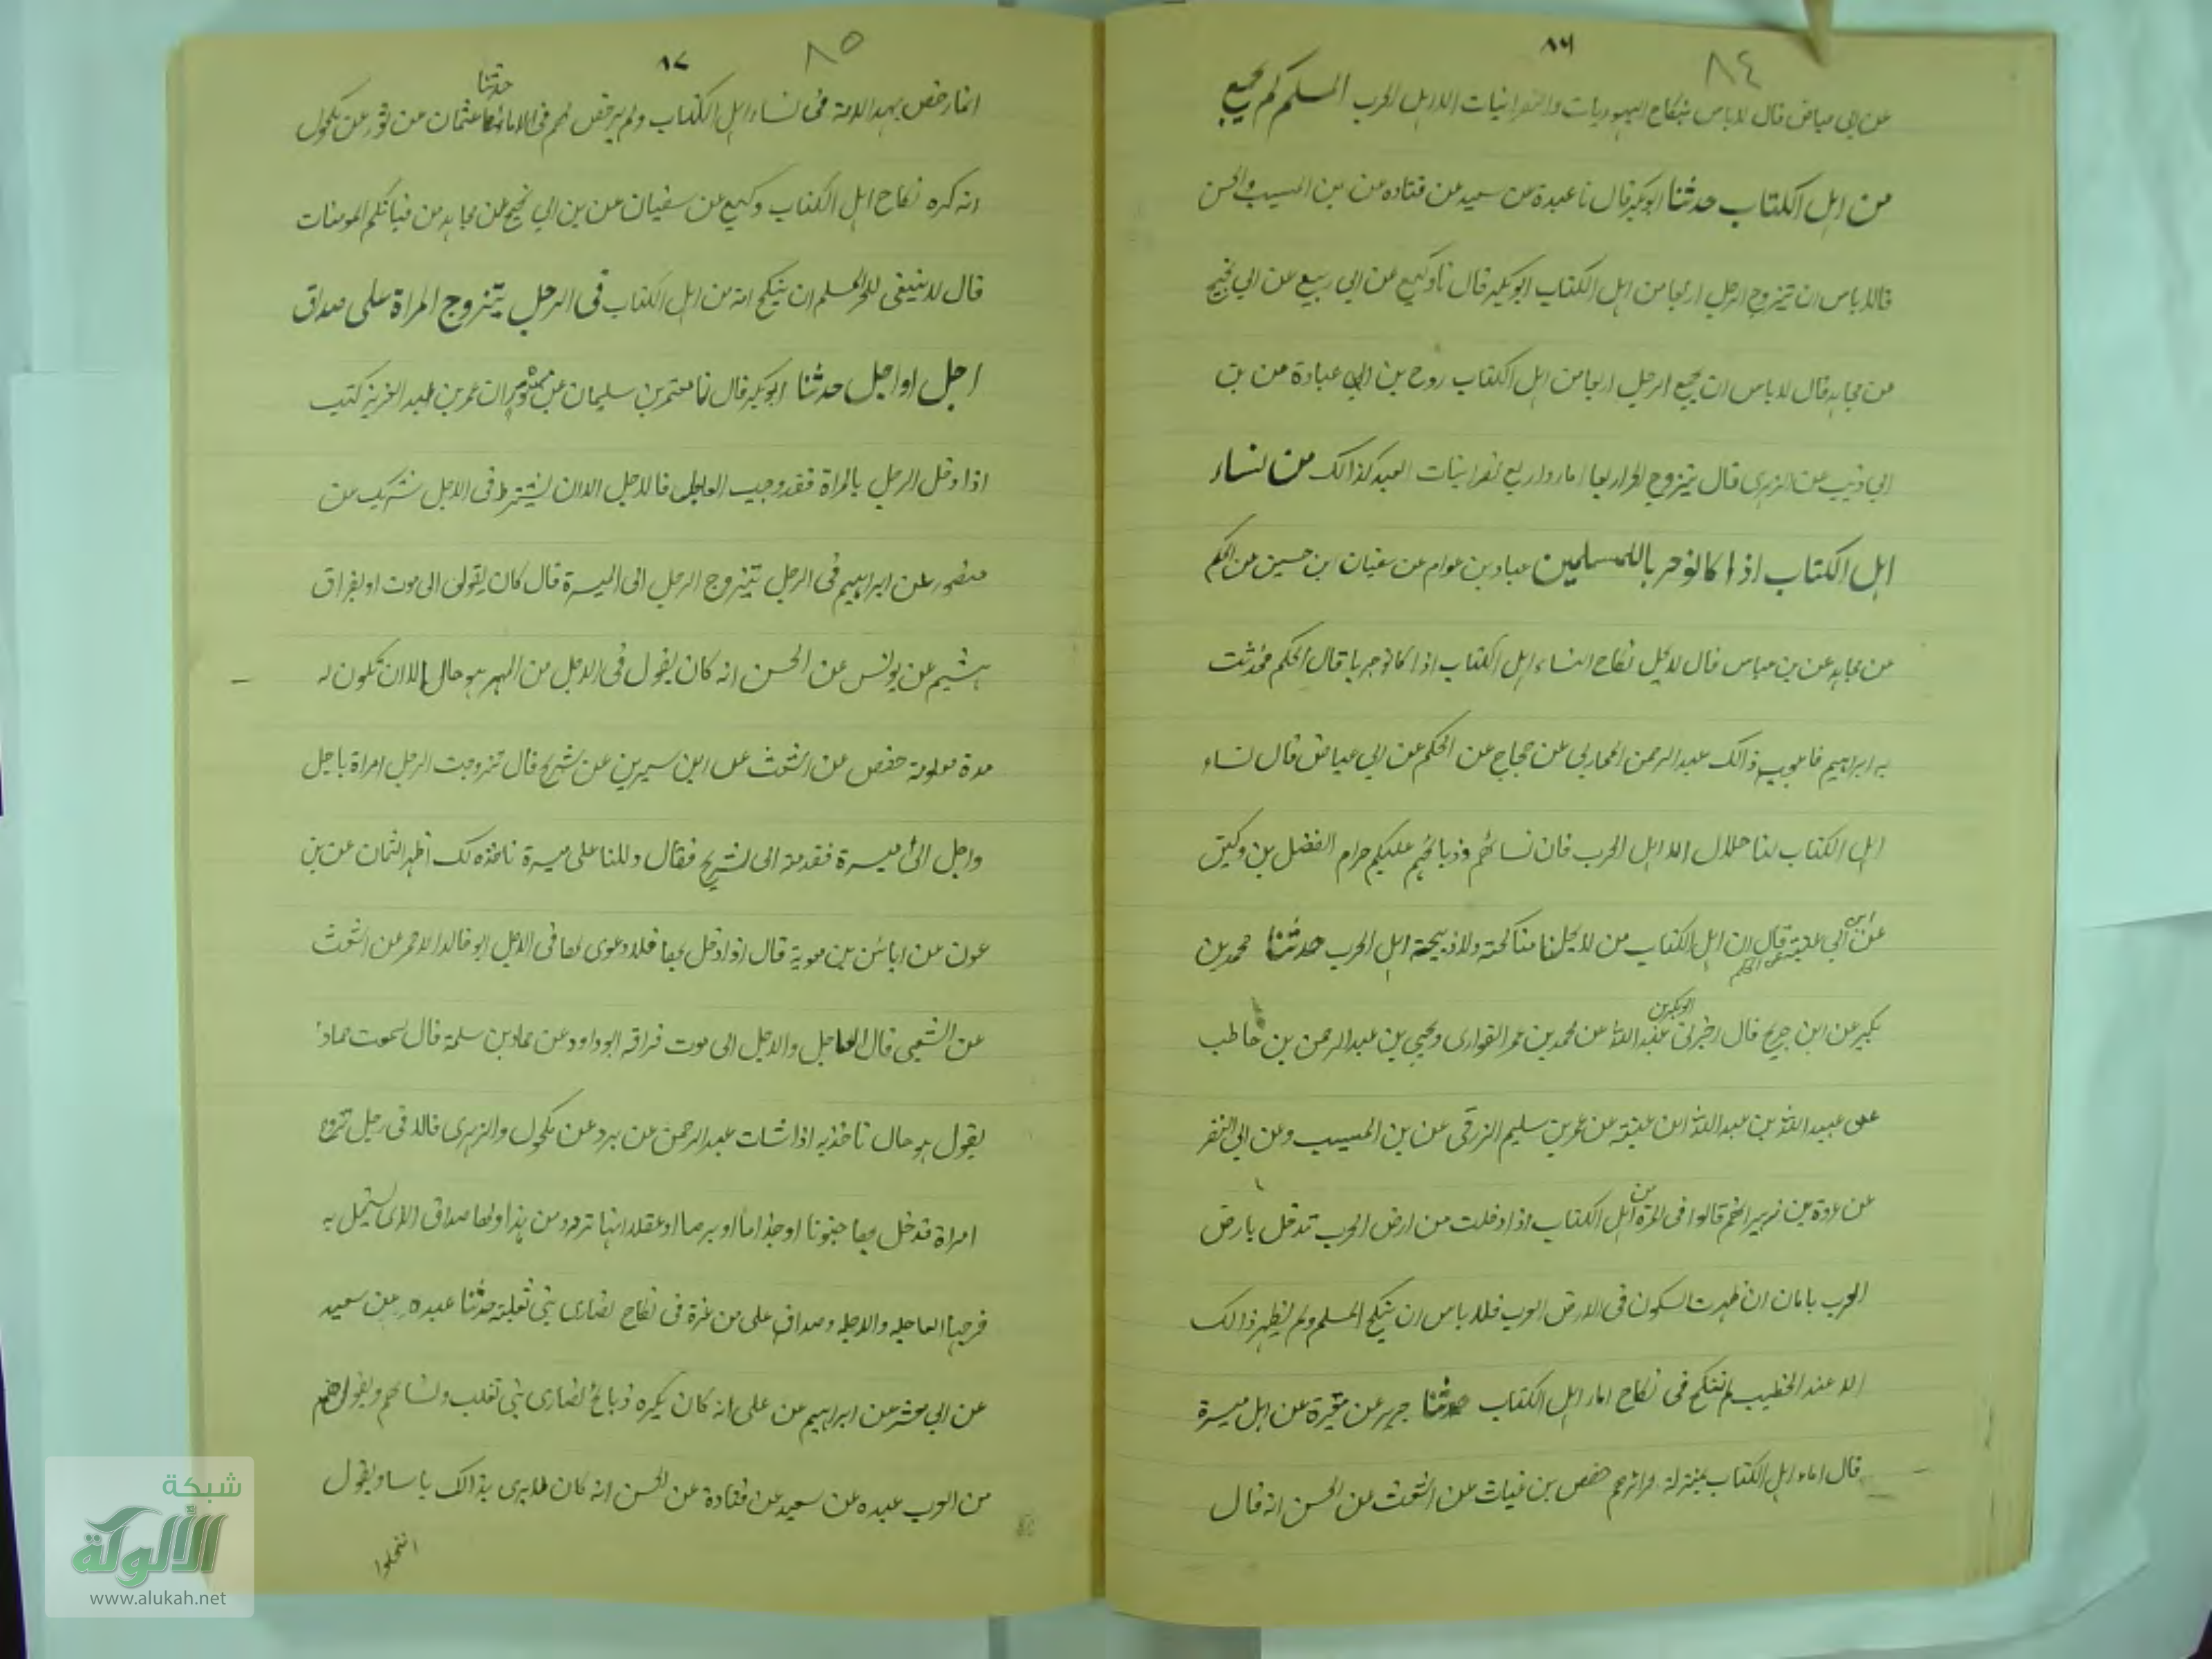 ٨٦ ٨٤
عن ابى عياض قال لاباس بنكاح اليهوديات والنصرانيات الا اهل الحرب المسلم كم يجمع
من اهل الكتاب حدثنا ابوبكر قال نا عبدة عن سعيد عن قتاده عن بن المسيب والحسن
قالا لاباس ان يتزوج الرجل اربعا من اهل الكتاب ابوبكر قال نا وكيع عن ابى ربيع عن ابى نجيح
عن مجاهد قال لاباس ان يجمع الرجل اربعا من اهل الكتاب روح بن عبادة عن بن
ابى ذيب عن الزهرى قال يتزوج الحر اربعا اماء واربع نصرانيات العبد كذالك من نساء
اهل الكتاب اذا كانو حربا للمسلمين عباد بن عوام عن سفيان ابن حسين عن الحكم
عن مجاهد عن بن عباس قال لايحل نكاح النساء اهل الكتاب اذا كانو حربا قال الحكم فحدثت
به ابراهيم فاعجبه ذالك عبدالرحمن المحاربى عن حجاج عن الحكم عن ابى عياض قال نساء
اهل الكتاب لنا حلال الا اهل الحرب فان نسائهم وذبائحهم عليكم حرام الفضل بن وكين
عن ابن ابى عتبة عن الحكم قال ان اهل الكتاب من لايحل لنا مناكحته ولا ذبيحته اهل الحرب حدثنا محمد بن
بكير عن ابن جريج قال اخبرنى ابوبكر بن عبدالله عن محمد بن عمر القوارى ويحيى بن عبدالرحمن بن حاطب
عن عبيد الله بن عبدالله ابن عتبة عن عمر بن سليم الزرقى عن بن المسيب وعن ابى النضر
عن عروة بن زبير انهم قالوا فى المرة من اهل الكتاب اذا دخلت من ارض الحرب تدخل بارض
العرب بامان ان ظهرت السكون فى الارض العرب فلا باس ان ينكح المسلم ولم يظهر ذالك
الا عند الخطيب لم تنكح فى نكاح اماء اهل الكتاب حدثنا جرير عن مغيرة عن ابى ميسرة
قال اماء اهل الكتاب بمنزلة حرائرهم حفص بن غياث عن اشعث عن الحسن انه قال
٨٧ ٨٥
انما رخص بهذه الامة فى نساء اهل الكتاب ولم يرخص لهم فى الاماء حدثنا عثمان عن ثور عن مكحول
انه كره نكاح اهل الكتاب وكيع عن سفيان عن بن ابى نجيح عن مجاهد من فتياتكم المومنات
قال لا ينبغى للحر المسلم ان ينكح امة من اهل الكتاب فى الرجل يتزوج المراة على صداق
اجل او اجل حدثنا ابوبكر قال نا معتمر بن سليمان عن ان عمر بن عبد العزيز كتب
اذا دخل الرجل بالمراة فقد وجب العاجل فالاجل الا ان يشترط فى الاجل شريك عن
منصور عن ابراهيم فى الرجل يتزوج الرجل الى الميسرة قال كان يقول الى موت او بفراق
هشيم عن يونس عن الحسن انه كان يقول فى الاجل من المهر هو حال الا ان تكون له
مدة معلومة حفص عن اشعث عن ابن سيرين عن شريح قال تزوجت الرجل امراة باجل
واجل الى ميسرة فقدمته الى شريح فقال دللنا على ميسرة ناخذه لك اظهر الثمان عن بن
عون عن اياس بن معوية قال اذا دخل بها فلا دعوى لها فى الاجل ابو خالد الاحمر عن اشعث
عن الشعبى قال العاجل والاجل الى موت فراقه ابو داود عن حماد بن سلمة قال سمعت حمادا
يقول هو حال تاخذ به اذا شات عبدالرحمن عن برد عن مكحول والزهرى قالا فى رجل تزوج
امراة فدخل بها جنونا او جذاما او برصا او عقلا انها ترد من هذا ولها صداق الذى استحل به
فرجها العاجله والاجله وصداق على من غره فى نكاح نصارى بنى ثعلبة حدثنا عبده عن سعيد
عن ابى معشر عن ابراهيم عن على انه كان يكره ذبائح نصارى بنى تغلب ونسائهم ويقول هم
من العرب عبده عن سعيد عن قتادة عن الحسن انه كان لايرى بذالك باسا ويقول
انتحلوا
شبكة
الألوكة
www.alukah.net